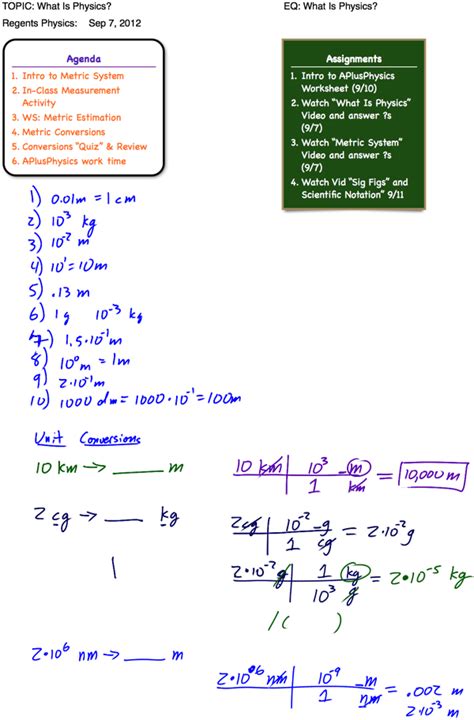 TOPIC: What Is Physics?
EQ: What Is Physics?
Regents Physics: Sep 7, 2012
Agenda
1. Intro to Metric System
2. In-Class Measurement
Activity
3. WS: Metric Estimation
4. Metric Conversions
5. Conversions "Quiz" & Review
6. APlusPhysics work time
Assignments
1. Intro to APlusPhysics
Worksheet (9/10)
2. Watch "What Is Physics"
Video and answer ?s
(9/7)
3. Watch "Metric System"
Video and answer ?s
(9/7)
4. Watch Vid "Sig Figs" and
Scientific Notation" 9/11
1) 0.01m = 1cm
2) 10³ kg
3) 10⁻² m
4) 10¹ = 10m
5) .13 m
6) 1g 10⁻³ kg
7) 1.5·10⁻¹ m
8) 10⁰ m = 1m
9) 2·10⁻¹ m
10) 1000 dm = 1000·10⁻¹ = 100m
Unit Conversions
10 km → ____ m
10 km | 10³ m / 1 km = 10,000 m
2 cg → ____ kg
2 cg | 10⁻² g / 1 cg = 2·10⁻² g
2·10⁻² g | 1 kg / 10³ g = 2·10⁻⁵ kg
1
/( )
2·10⁶ nm → ____ m
2·10⁶ nm | 10⁻⁹ m / 1 nm = .002 m
2·10⁻³ m